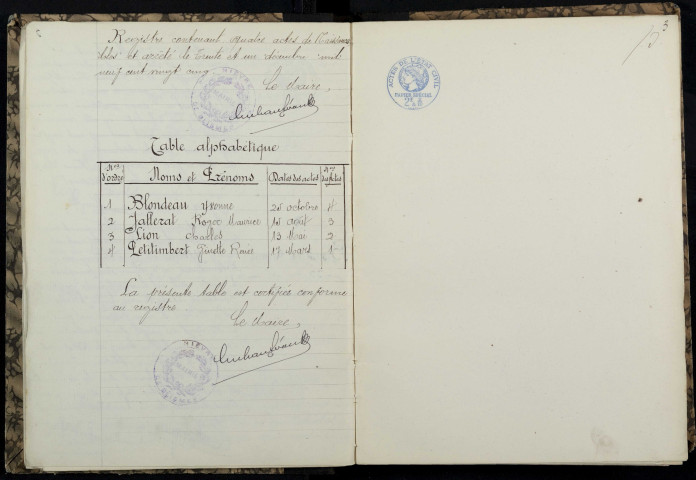 Registre contenant quatre actes de Naissances
clos et arrêté le Trente et un décembre mil
neuf cent vingt cinq
Le Maire,
Table alphabétique
Nos d'ordre Noms et Prénoms Dates des actes Nos des actes
1 Blondeau Yvonne 25 octobre 4
2 Jallerat Roger Maurice 15 août 3
3 Lion Charles 13 Mai 2
4 Petitimbert Ginette Renée 17 Mars 1
La présente table est certifiée conforme
au registre
Le Maire,
ACTES DE L'ETAT CIVIL
PAPIER SPÉCIAL
3